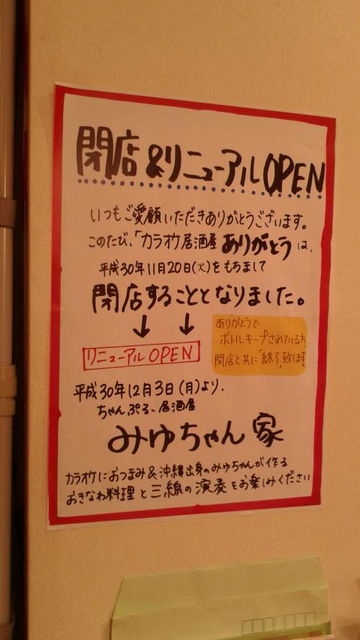 閉店&リニューアルOPEN
いつもご愛顧いただきありがとうございます。
このたび、「カラオケ居酒屋 ありがとうは、
平成30年11月20日(火)をもちまして
閉店することとなりました。
↓ ↓
ありがとうで
ボトルキープされている方、
閉店と共に"終了"致します
リニューアルOPEN
平成30年12月3日(月)より、
ちゃんぷる、居酒屋
みゆちゃん家
カラオケにおつまみ&沖縄出身のみゆちゃんが作る
おきなわ料理と三線の演奏をお楽しみください